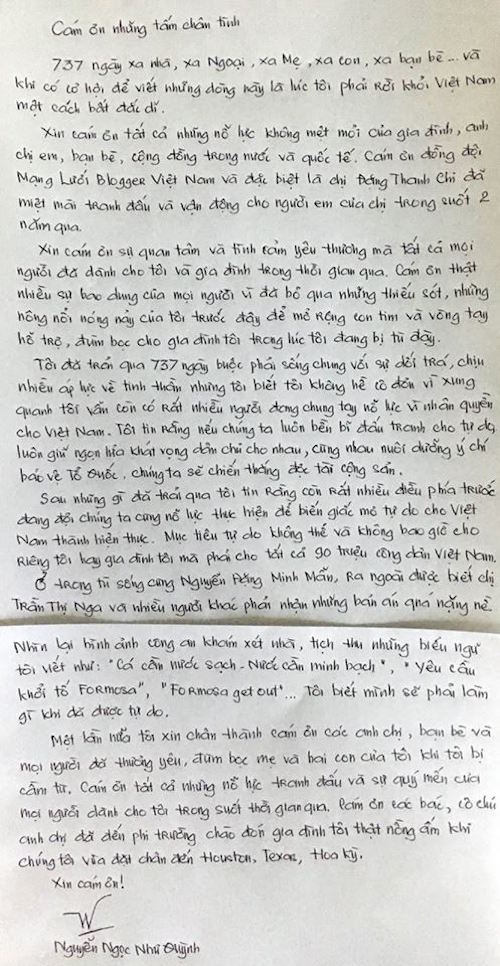 Cám ơn những tấm chân tình
737 ngày xa nhà, xa Ngoại, xa Mẹ, xa con, xa bạn bè... và
khi có cơ hội để viết những dòng này là lúc tôi phải Rời khỏi Việt Nam
một cách bất đắc dĩ.
Xin cám ơn tất cả những nỗ lực không mệt mỏi của gia đình, anh
chị em, bạn bè, cộng đồng trong nước và quốc tế. Cám ơn đồng đội
Mạng Lưới Blogger Việt Nam và đặc biệt là chị Đặng Thanh Chi đã
miệt mài tranh đấu và vận động cho người em của chị trong suốt 2
năm qua.
Xin cám ơn sự quan tâm và tình cảm yêu thương mà tất cả mọi
người đã dành cho tôi và gia đình trong thời gian qua. Cám ơn thật
nhiều sự bao dung của mọi người vì đã bỏ qua những thiếu sót, những
nông nổi nóng nảy của tôi trước đây để mở rộng con tim và vòng tay
hỗ trợ, đùm bọc cho gia đình tôi trong lúc tôi đang bị tù đày.
Tôi đã trải qua 737 ngày buộc phải sống chung với sự dối trá, chịu
nhiều áp lực về tinh thần nhưng tôi biết tôi không hề cô đơn vì xung
quanh tôi vẫn còn có rất nhiều người đang chung tay nỗ lực vì nhân quyền
cho Việt Nam. Tôi tin rằng nếu chúng ta luôn bền bỉ đấu tranh cho tự do,
luôn giữ ngọn lửa khát vọng dân chủ cho nhau, cùng nhau nuôi dưỡng ý chí
bảo vệ Tổ Quốc, chúng ta sẽ chiến thắng độc tài cộng sản.
Sau những gì đã trải qua tôi tin rằng còn rất nhiều điều phía trước
đang đợi chúng ta cùng nỗ lực thực hiện để biến giấc mơ tự do cho Việt
Nam thành hiện thực. Mục tiêu tự do không thể và không bao giờ cho
riêng tôi hay gia đình tôi mà phải cho tất cả 90 triệu công dân Việt Nam.
Ở trong tù sống cùng Nguyễn Đặng Minh Mẫn, ra ngoài được biết chị
Trần Thị Nga và nhiều người khác phải nhận những bản án quá nặng nề.
Nhìn lại hình ảnh công an khám xét nhà, tịch thu những biểu ngữ
tôi viết như: "Cá cần nước sạch - Nước cần minh bạch", "Yêu cầu
khởi tố Formosa", "Formosa get out"... Tôi biết mình sẽ phải làm
gì khi đã được tự do.
Một lần nữa tôi xin chân thành cám ơn các anh chị, bạn bè và
mọi người đã thương yêu, đùm bọc mẹ và hai con của tôi khi tôi bị
cầm tù. Cám ơn tất cả những nỗ lực tranh đấu và sự quý mến của
mọi người dành cho tôi trong suốt thời gian qua. Cám ơn các bác, cô chú
anh chị đã đến phi trường chào đón gia đình tôi thật nồng ấm khi
chúng tôi vừa đặt chân đến Houston, Texas, Hoa Kỳ.
Xin cám ơn!
Nguyễn Ngọc Như Quỳnh